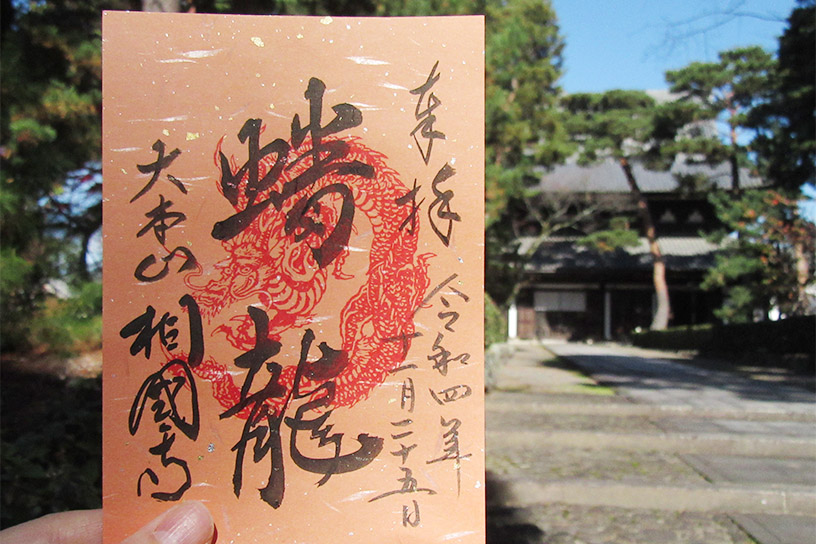 奉拝
令和四年
十一月二十五日
蟠龍
大本山
相國寺